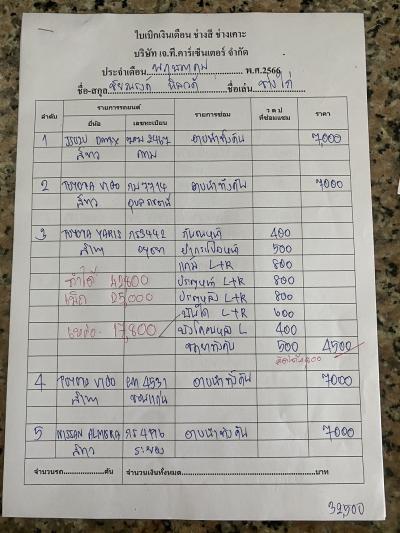 ใบเบิกเงินเดือน ช่างสี ช่างเคาะ
บริษัท เจ.ที.คาร์เซ็นเตอร์ จำกัด
ประจำเดือน พฤษภาคม พ.ศ.2566
ชื่อ-สกุล ชื่อเล่น ช่างไก่
ลำดับ รายการรถยนต์ รายการซ่อม ว ด ป ที่ซ่อมแซม ราคา
ยี่ห้อ เลขทะเบียน
1 ISUZU Dmax 2467 อาบน้ำทั้งคัน 7,000
สีขาว กทม
2 TOYOTA VIGO กม 7714 อาบน้ำทั้งคัน 7000
สีขาว อุบลราชธานี
3 TOYOTA YARIS กร3442 กันชนหน้า 400
สีเทา อยุธยา ฝากระโปงหน้า 500
แก้ม L+R 800
ทำได้ 42,800 ประตูหน้า L+R 800
เบิก 25,000 ประตูหลัง L+R 800
บันได L+R 600
เหลือ 17,800 บังโคลนหลัง L 400
500 4500
4 TOYOTA VIGO 4531 อาบน้ำทั้งคัน 7000
สีเทา ขอนแก่น
5 NISSAN ALMERA กร 4776 อาบน้ำทั้งคัน 7000
สีขาว ระยอง
จำนวนรถ....................คัน จำนวนเงินทั้งหมด....................บาท
32,500